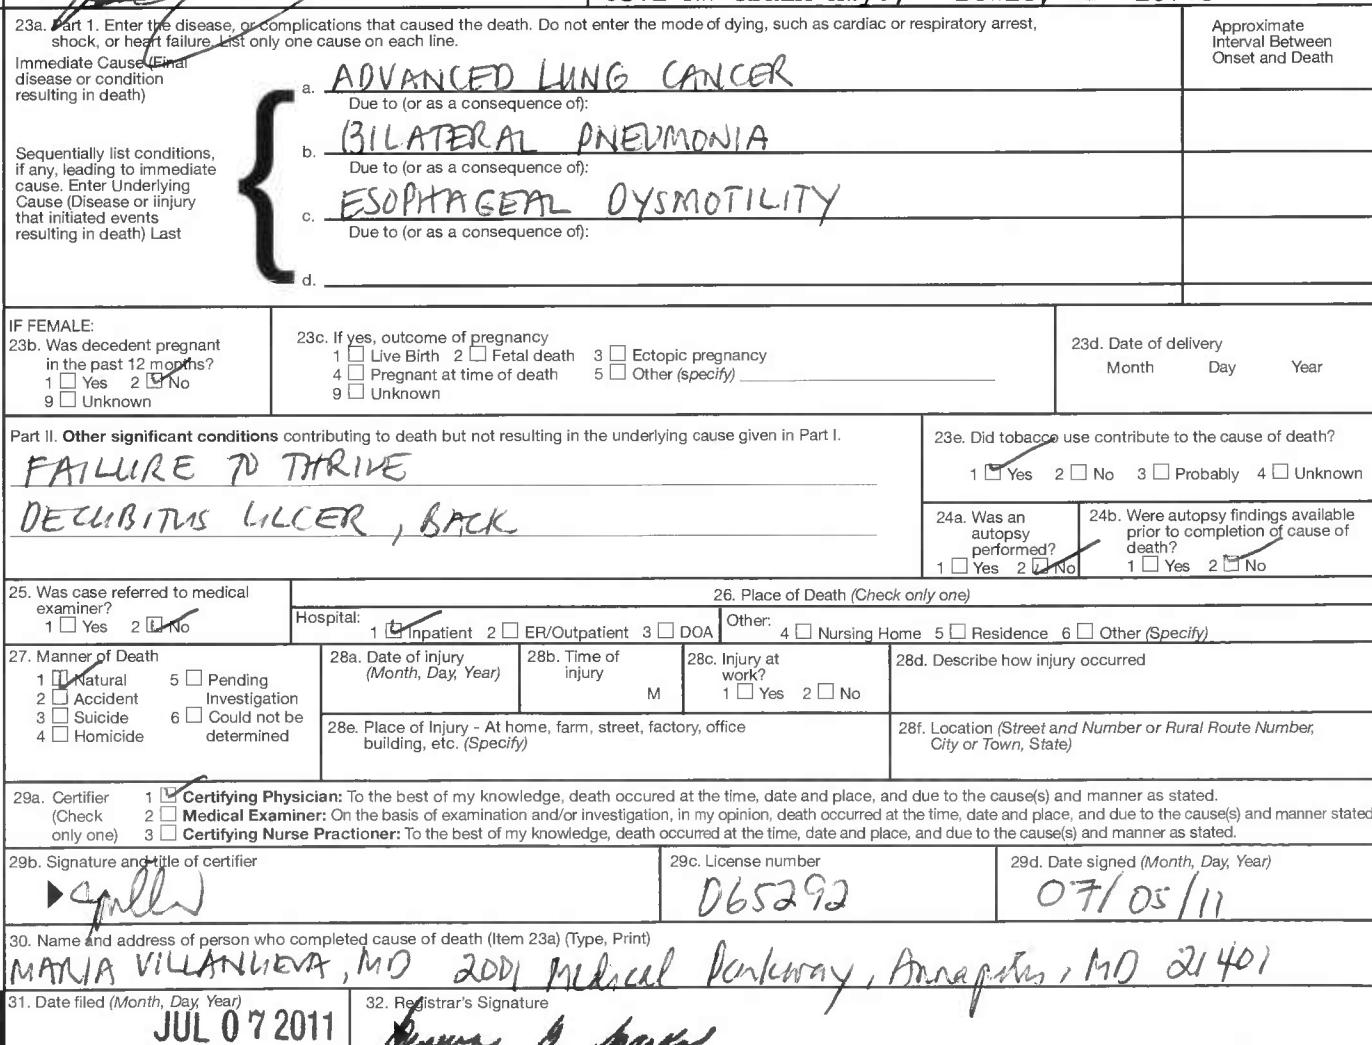 23a. Part 1. Enter the disease, or complications that caused the death. Do not enter the mode of dying, such as cardiac or respiratory arrest,
shock, or heart failure. List only one cause on each line.
Approximate
Interval Between
Onset and Death
Immediate Cause (Final
disease or condition
resulting in death)
a. ADVANCED LUNG CANCER
Due to (or as a consequence of):
Sequentially list conditions,
if any, leading to immediate
cause. Enter Underlying
Cause (Disease or iinjury
that initiated events
resulting in death) Last
b. BILATERAL PNEUMONIA
Due to (or as a consequence of):
c. ESOPHAGEAL DYSMOTILITY
Due to (or as a consequence of):
d.
IF FEMALE:
23b. Was decedent pregnant
in the past 12 months?
1 Yes 2 No
9 Unknown
23c. If yes, outcome of pregnancy
1 Live Birth 2 Fetal death 3 Ectopic pregnancy
4 Pregnant at time of death 5 Other (specify)
9 Unknown
23d. Date of delivery
Month Day Year
Part II. Other significant conditions contributing to death but not resulting in the underlying cause given in Part I.
FAILURE TO THRIVE
DECUBITUS ULCER, BACK
23e. Did tobacco use contribute to the cause of death?
1 Yes 2 No 3 Probably 4 Unknown
24a. Was an
autopsy
performed?
1 Yes 2 No
24b. Were autopsy findings available
prior to completion of cause of
death?
1 Yes 2 No
25. Was case referred to medical
examiner?
1 Yes 2 No
26. Place of Death (Check only one)
Hospital: 1 Inpatient 2 ER/Outpatient 3 DOA
Other: 4 Nursing Home 5 Residence 6 Other (Specify)
27. Manner of Death
1 Natural 5 Pending
2 Accident Investigation
3 Suicide 6 Could not be
4 Homicide determined
28a. Date of injury
(Month, Day, Year)
28b. Time of
injury
M
28c. Injury at
work?
1 Yes 2 No
28d. Describe how injury occurred
28e. Place of Injury - At home, farm, street, factory, office
building, etc. (Specify)
28f. Location (Street and Number or Rural Route Number,
City or Town, State)
29a. Certifier
(Check
only one)
1 Certifying Physician: To the best of my knowledge, death occured at the time, date and place, and due to the cause(s) and manner as stated.
2 Medical Examiner: On the basis of examination and/or investigation, in my opinion, death occurred at the time, date and place, and due to the cause(s) and manner stated
3 Certifying Nurse Practioner: To the best of my knowledge, death occurred at the time, date and place, and due to the cause(s) and manner as stated.
29b. Signature and title of certifier
29c. License number
D65292
29d. Date signed (Month, Day, Year)
07/05/11
30. Name and address of person who completed cause of death (Item 23a) (Type, Print)
MARIA VILLANUEVA, MD 2001 Medical Parkway, Annapolis, MD 21401
31. Date filed (Month, Day, Year)
JUL 07 2011
32. Registrar's Signature